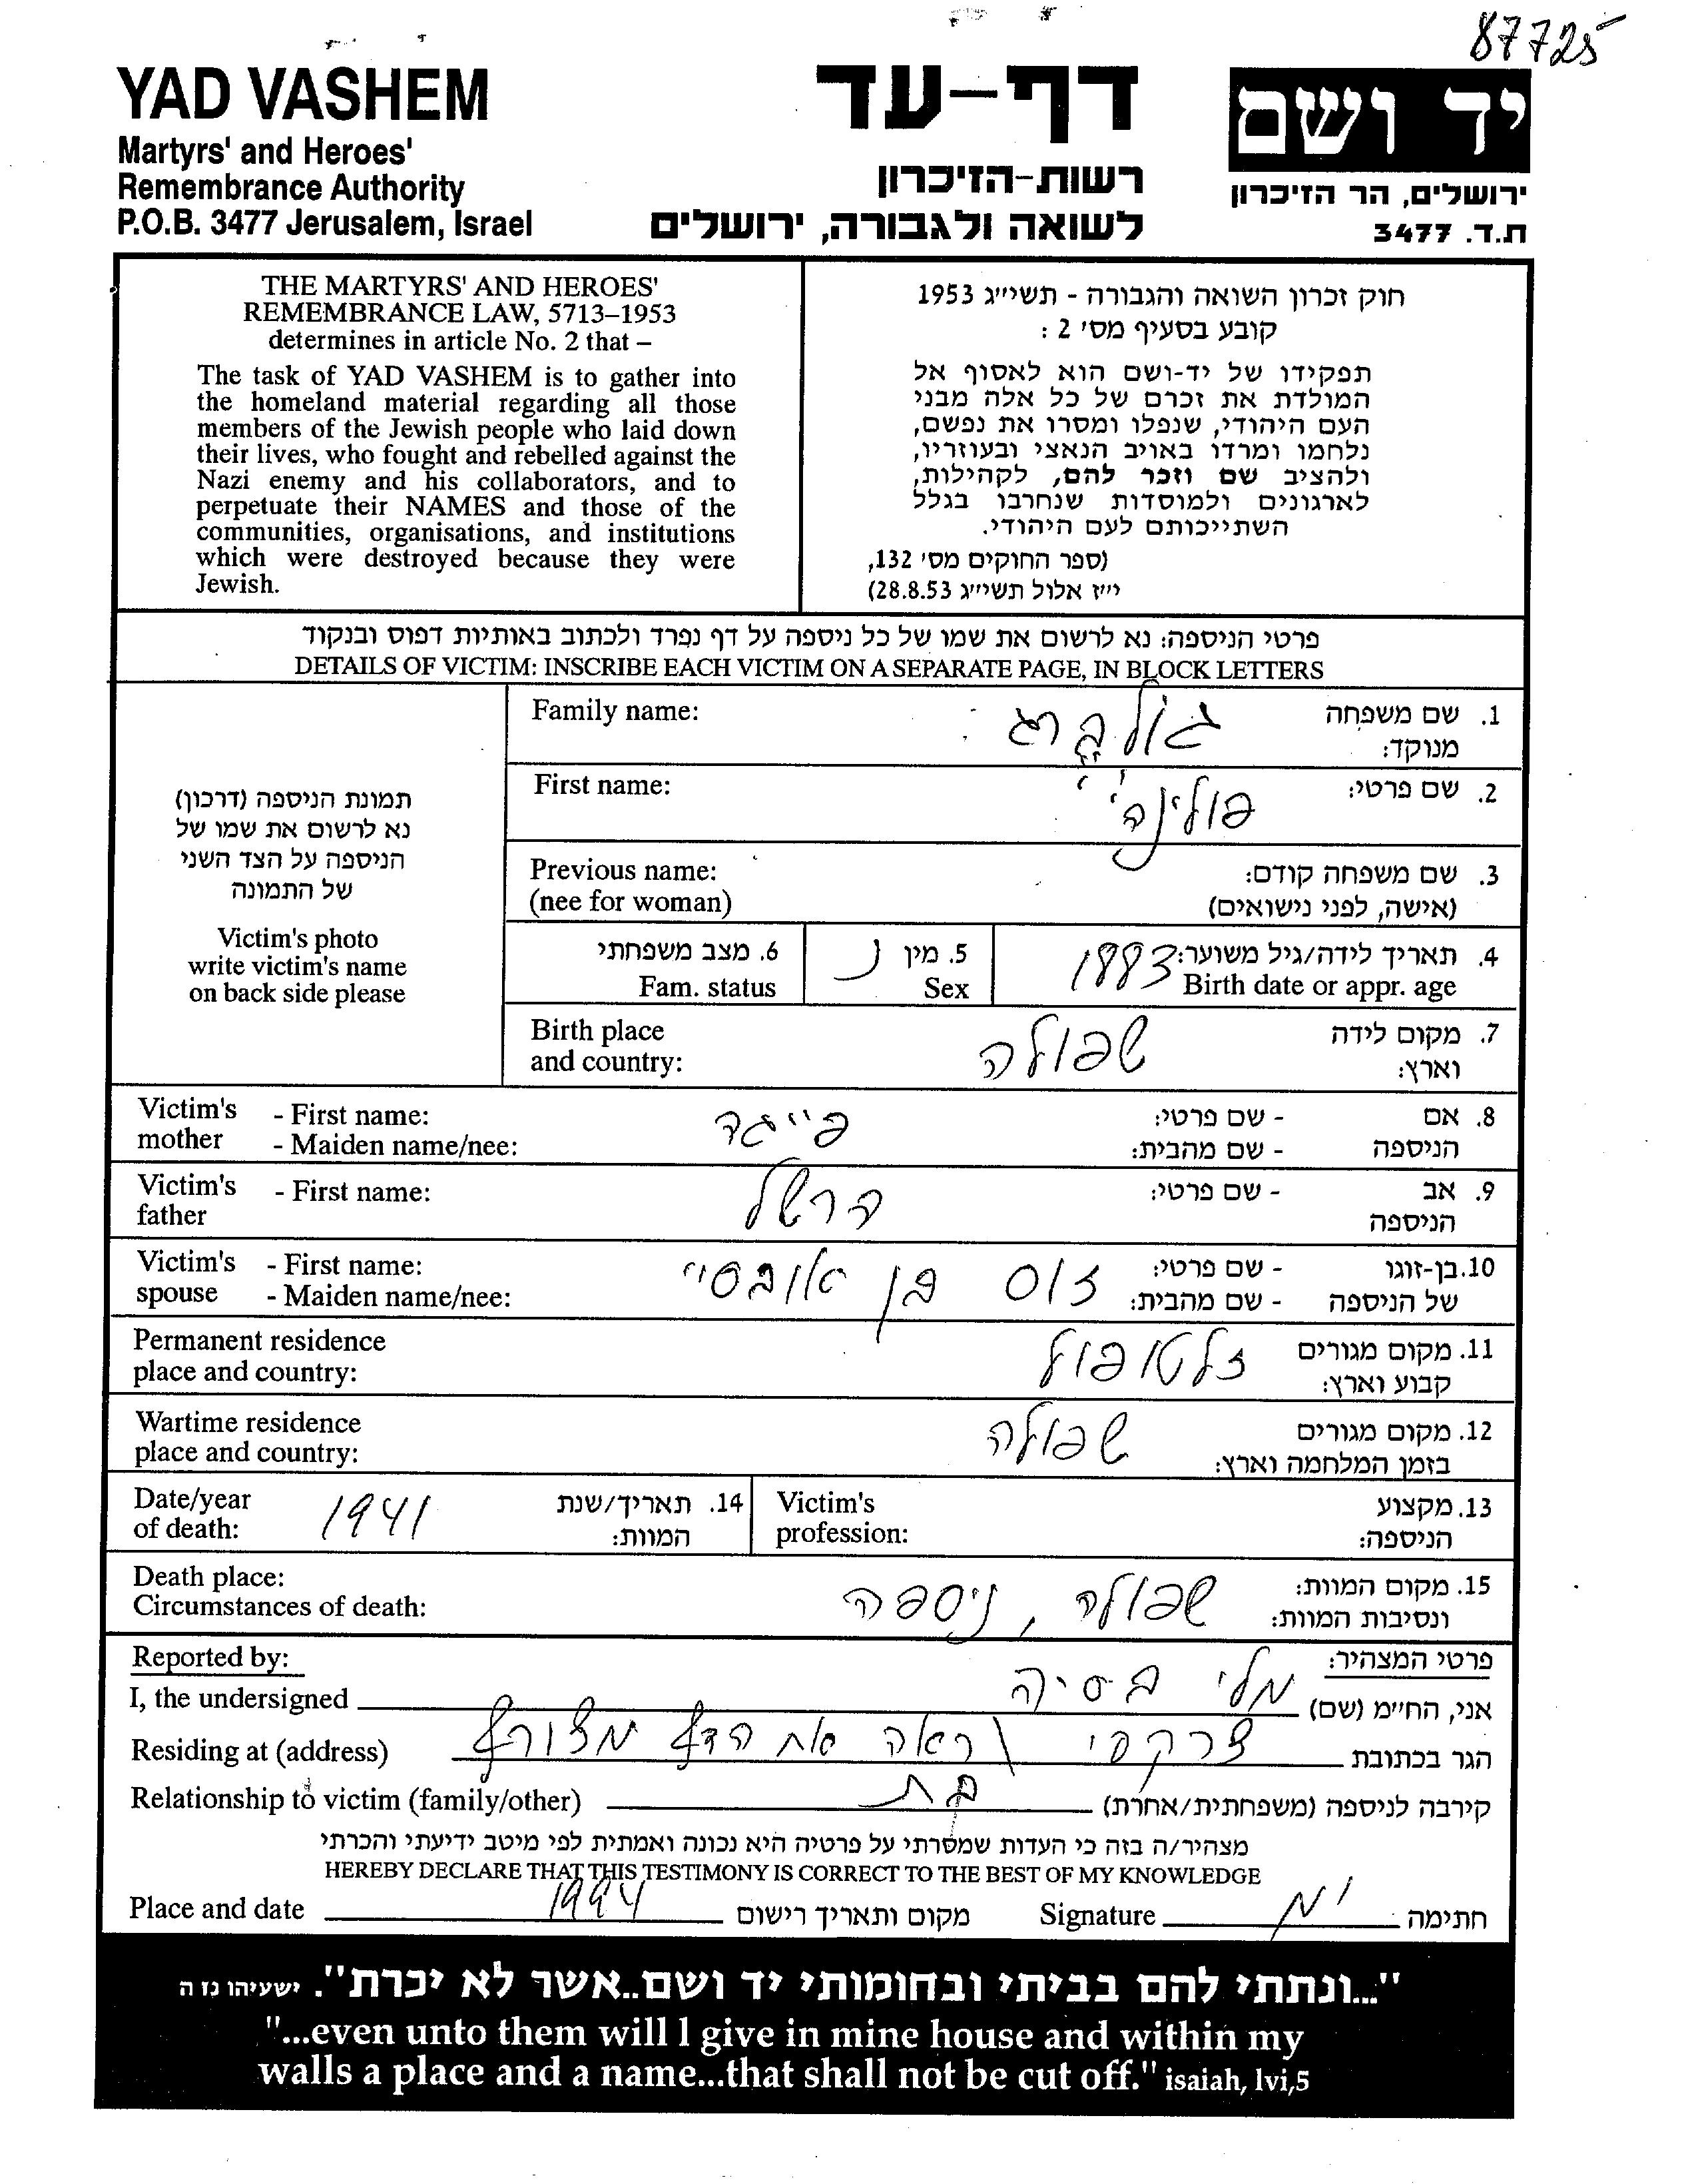 87725
YAD VASHEM
Martyrs' and Heroes'
Remembrance Authority
P.O.B. 3477 Jerusalem, Israel
דף-עד
רשות-הזיכרון
לשואה ולגבורה, ירושלים
יד ושם
ירושלים, הר הזיכרון
ת.ד. 3477
THE MARTYRS' AND HEROES'
REMEMBRANCE LAW, 5713–1953
determines in article No. 2 that –
The task of YAD VASHEM is to gather into
the homeland material regarding all those
members of the Jewish people who laid down
their lives, who fought and rebelled against the
Nazi enemy and his collaborators, and to
perpetuate their NAMES and those of the
communities, organisations, and institutions
which were destroyed because they were
Jewish.
חוק זכרון השואה והגבורה - תשי״ג 1953
קובע בסעיף מס׳ 2 :
תפקידו של יד-ושם הוא לאסוף אל
המולדת את זכרם של כל אלה מבני
העם היהודי, שנפלו ומסרו את נפשם,
נלחמו ומרדו באויב הנאצי ובעוזריו,
ולהציב שם וזכר להם, לקהילות,
לארגונים ולמוסדות שנחרבו בגלל
השתייכותם לעם היהודי.
(ספר החוקים מס׳ 132,
י״ז אלול תשי״ג 28.8.53)
פרטי הניספה: נא לרשום את שמו של כל ניספה על דף נפרד ולכתוב באותיות דפוס ובנקוד
DETAILS OF VICTIM: INSCRIBE EACH VICTIM ON A SEPARATE PAGE, IN BLOCK LETTERS
תמונת הניספה (דרכון)
נא לרשום את שמו של
הניספה על הצד השני
של התמונה
Victim's photo
write victim's name
on back side please
Family name: גולברג 1. שם משפחה
מנוקד:
First name: פולינה 2. שם פרטי:
Previous name: 3. שם משפחה קודם:
(nee for woman) (אישה, לפני נישואים)
6. מצב משפחתי 5. מין נ 4. תאריך לידה/גיל משוער: 1883
Fam. status Sex Birth date or appr. age
Birth place שפולה 7. מקום לידה
and country: וארץ:
Victim's - First name: פייגה 8. אם - שם פרטי:
mother - Maiden name/nee: הניספה - שם מהבית:
Victim's - First name: הרשל 9. אב - שם פרטי:
father הניספה
Victim's - First name: זוס בן אובסיי 10. בן-זוגו - שם פרטי:
spouse - Maiden name/nee: של הניספה - שם מהבית:
Permanent residence זלטופול 11. מקום מגורים
place and country: קבוע וארץ:
Wartime residence שפולה 12. מקום מגורים
place and country: בזמן המלחמה וארץ:
Date/year 1941 14. תאריך/שנת Victim's 13. מקצוע
of death: המוות: profession: הניספה:
Death place: שפולה, ניספה 15. מקום המוות:
Circumstances of death: ונסיבות המוות:
Reported by: פרטי המצהיר:
I, the undersigned מלי בסיה אני, החי״מ (שם)
Residing at (address) צרקסי \ ראה את הדף מצורף הגר בכתובת
Relationship to victim (family/other) בת קירבה לניספה (משפחתית/אחרת)
מצהיר/ה בזה כי העדות שמסרתי על פרטיה היא נכונה ואמתית לפי מיטב ידיעתי והכרתי
HEREBY DECLARE THAT THIS TESTIMONY IS CORRECT TO THE BEST OF MY KNOWLEDGE
Place and date 1994 מקום ותאריך רישום Signature חתימה
"...ונתתי להם בביתי ובחומותי יד ושם..אשר לא יכרת". ישעיהו נז ה
"...even unto them will I give in mine house and within my
walls a place and a name...that shall not be cut off." isaiah, lvi,5